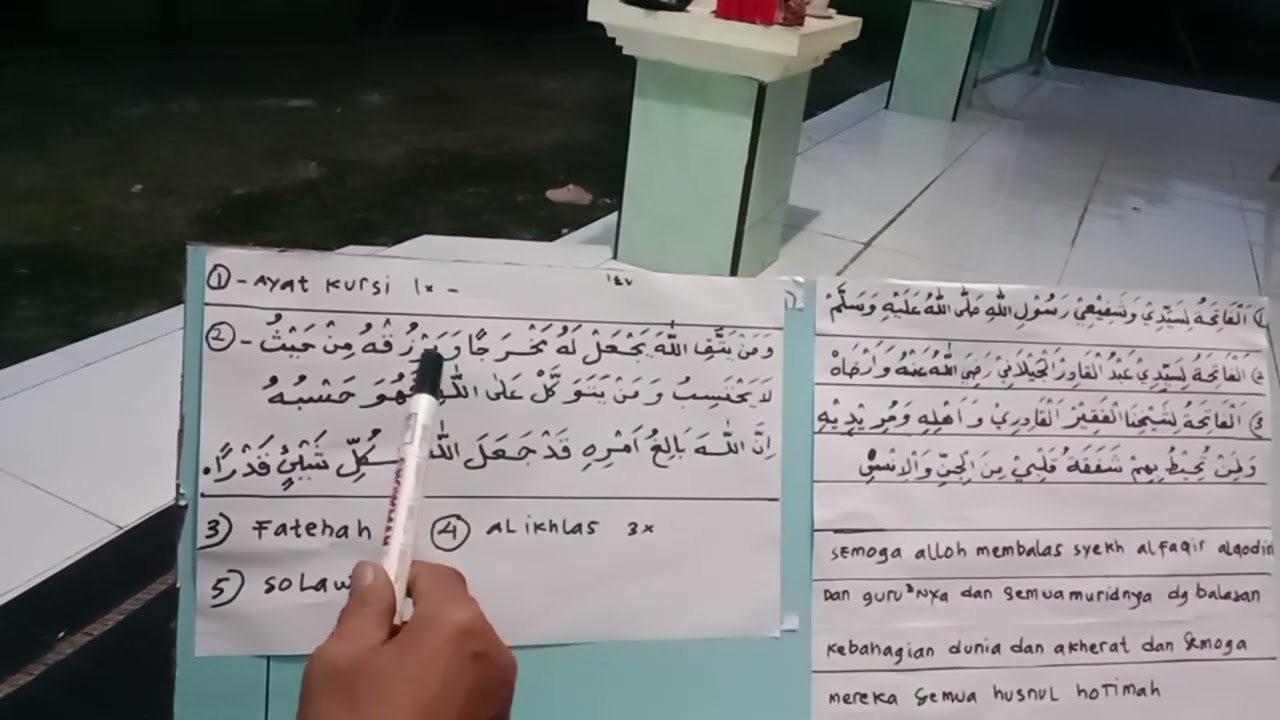 ① - Ayat kursi 1x -
② - وَمَنْ يَتَّقِ اللّٰهَ يَجْعَلْ لَهُ مَخْرَجًا وَيَرْزُقْهُ مِنْ حَيْثُ
لَا يَحْتَسِبُ وَمَنْ يَتَوَكَّلْ عَلَى اللّٰهِ فَهُوَ حَسْبُهُ
اِنَّ اللّٰهَ بَالِغُ اَمْرِهِ قَدْ جَعَلَ اللّٰهُ لِكُلِّ شَيْئٍ قَدْرًا.
3) Fatehah ④ AL ikhlas 3x
5) SoLaw
١) اَلْفَاتِحَةُ لِسَيِّدِيْ وَشَفِيْعِيْ رَسُوْلِ اللّٰهِ صَلَّى اللّٰهُ عَلَيْهِ وَسَلَّمْ
٢) اَلْفَاتِحَةُ لِسَيِّدِيْ عَبْدُ الْقَادِرْ الْجَيْلَانِيْ رَضِيَ اللّٰهُ عَنْهُ وَاَرْضَاهْ
٣) اَلْفَاتِحَةُ لِشَيْخِنَا الْفَقِيْرْ الْقَادِرِيْ وَاَهْلِهِ وَمُرِيْدِيْهِ
وَلِمَنْ تُحِيْطُ بِهِمْ شَفَقَةُ قَلْبِيْ مِنَ الْجِنِّ وَالْاِنْسِ
SEMOGA alloh membalas syekh alfaqir alqodiri
Dan guru²Nya dan semua muridnya dg balasan
kebahagian dunia dan akherat dan semoga
mereka semua husnul hotimah